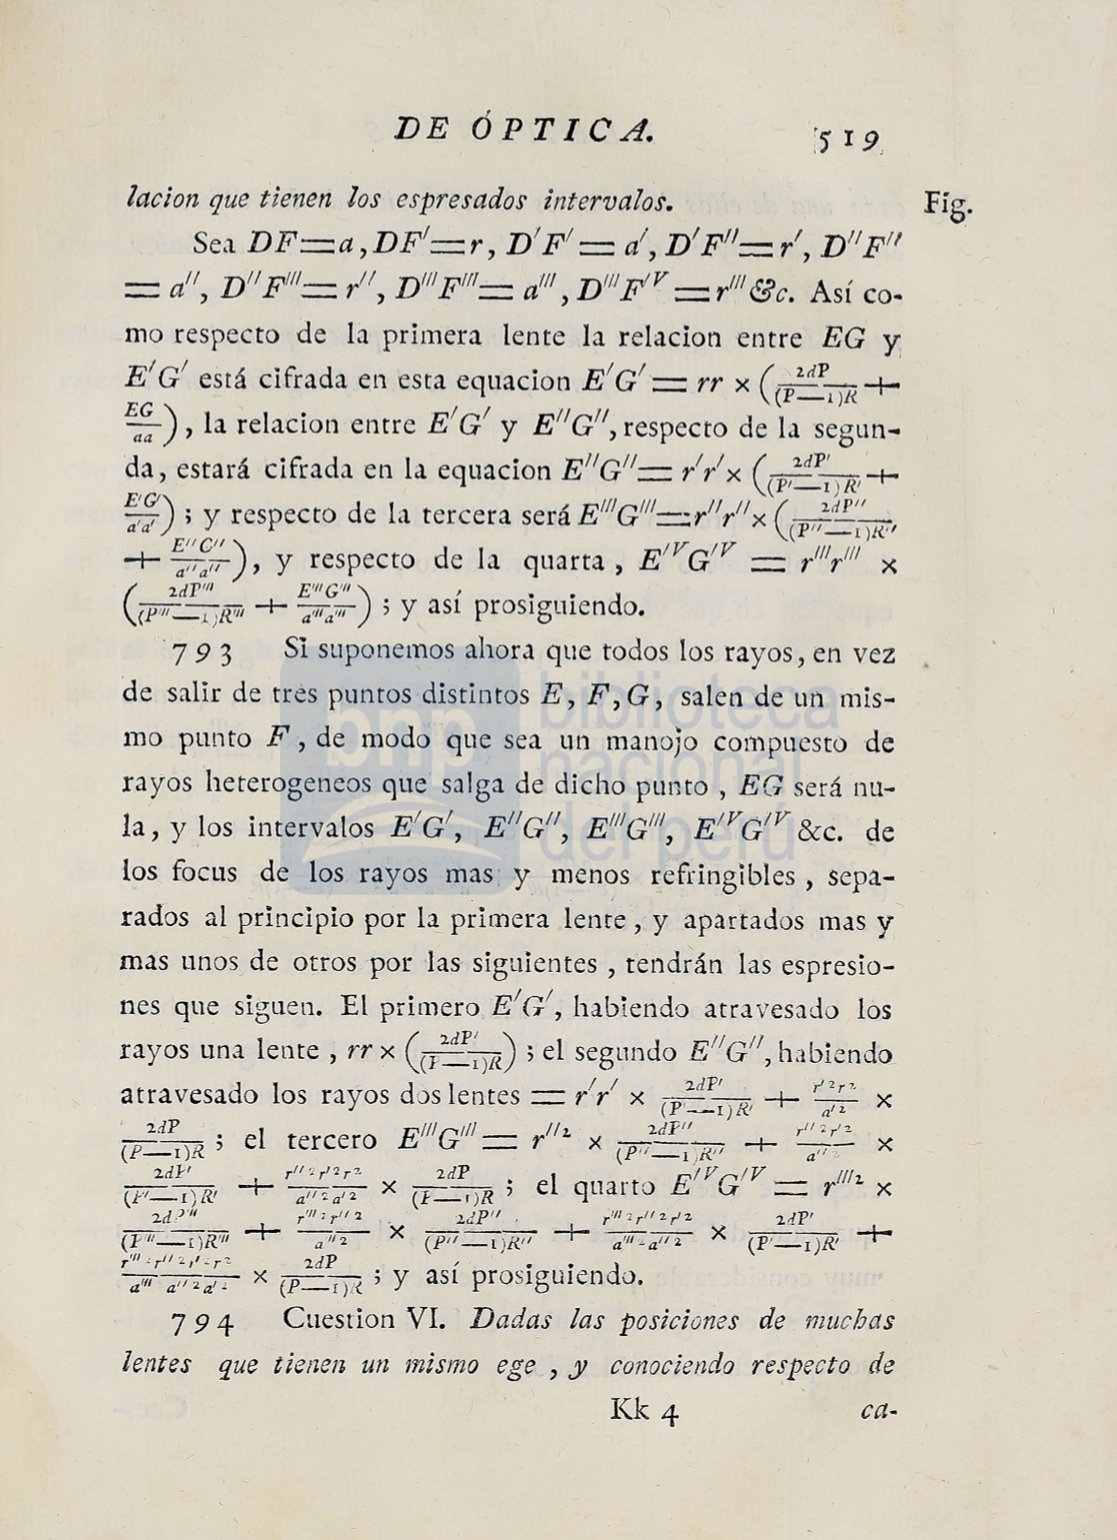 DE ÓPTICA. 519
lacion que tienen los espresados intervalos. Fig.
Sea DF=a, DF′=r, D′F′=a′, D′F″=r′, D″F″
=a″, D″F‴=r″, D‴F‴=a‴, D‴F′ⱽ=r‴ &c. Así co-
mo respecto de la primera lente la relacion entre EG y
E′G′ está cifrada en esta equacion E′G′ = rr × (2dP/(P—1)R +
EG/aa), la relacion entre E′G′ y E″G″, respecto de la segun-
da, estará cifrada en la equacion E″G″= r′r′ × (2dP′/(P′—1)R′ +
E′G′/a′a′); y respecto de la tercera será E‴G‴=r″r″× (2dP″/(P″—1)R″
+ E″C″/a″a″), y respecto de la quarta, E′ⱽG′ⱽ = r‴r‴ ×
(2dP‴/(P‴—1)R‴ + E‴G‴/a‴a‴); y así prosiguiendo.
793 Si suponemos ahora que todos los rayos, en vez
de salir de tres puntos distintos E, F, G, salen de un mis-
mo punto F, de modo que sea un manojo compuesto de
rayos heterogeneos que salga de dicho punto, EG será nu-
la, y los intervalos E′G′, E″G″, E‴G‴, E′ⱽG′ⱽ &c. de
los focus de los rayos mas y menos refringibles, sepa-
rados al principio por la primera lente, y apartados mas y
mas unos de otros por las siguientes, tendrán las espresio-
nes que siguen. El primero E′G′, habiendo atravesado los
rayos una lente, rr × (2dP′/(P—1)R); el segundo E″G″, habiendo
atravesado los rayos dos lentes = r′r′ × 2dP′/(P′—1)R′ + r′²r²/a′² ×
2dP/(P—1)R; el tercero E‴G‴ = r″² × 2dP″/(P″—1)R″ + r″²r′²/a″² ×
2dP′/(P′—1)R′ + r″²r′²r²/a″²a′² × 2dP/(P—1)R; el quarto E′ⱽG′ⱽ = r‴² ×
2dP‴/(P‴—1)R‴ + r‴²r″²/a‴² × 2dP″/(P″—1)R″ + r‴²r″²r′²/a‴²a″² × 2dP′/(P′—1)R′ +
r‴²r″²r′²r²/a‴²a″²a′² × 2dP/(P—1)R; y así prosiguiendo.
794 Cuestion VI. Dadas las posiciones de muchas
lentes que tienen un mismo ege, y conociendo respecto de
Kk 4 ca-
bnp biblioteca
nacional
del perú